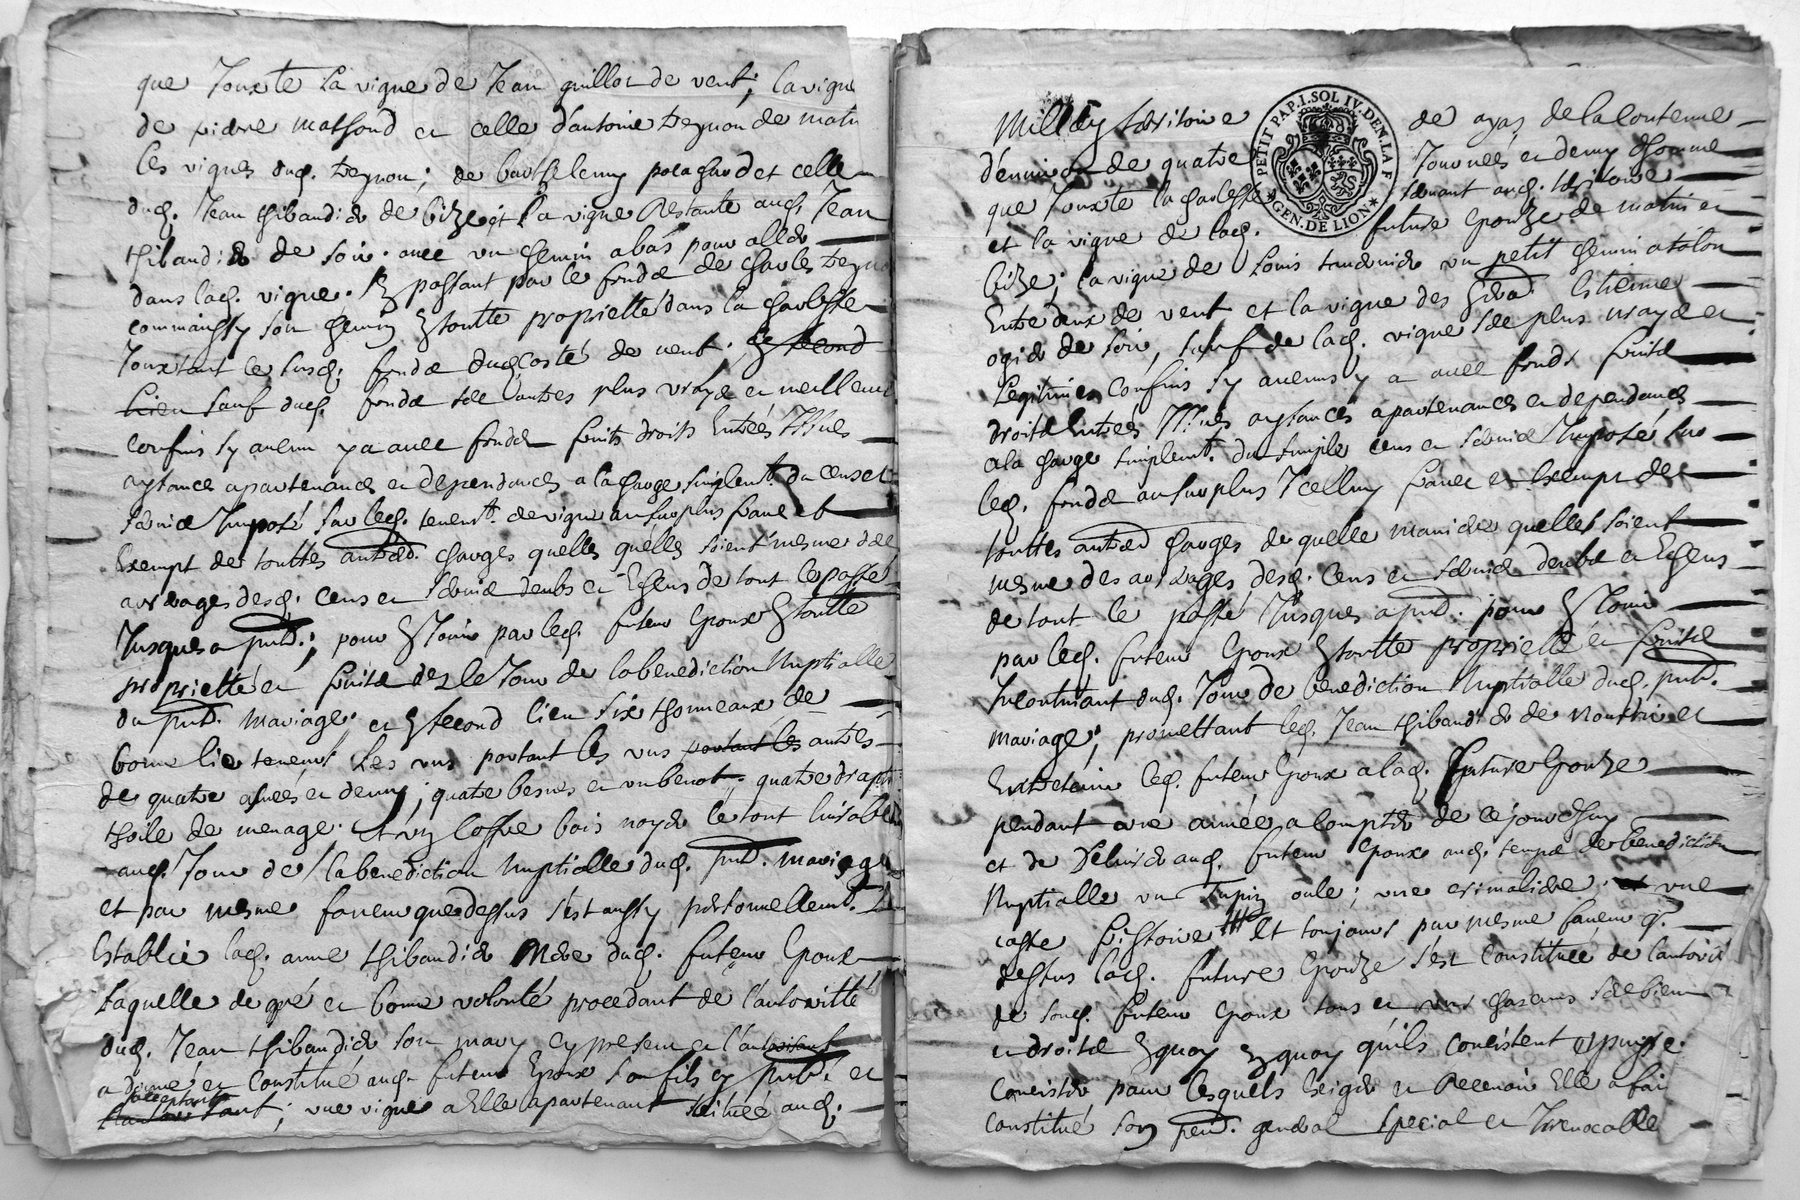 que Jouxte la vigne de Jean guillot de vent; la vigne
de pierre mathoud et celle d'antoine Deynon de matin
les vignes dud. Deynon; de barthelemy et celle
dud. Jean thibaudier de bize et la vigne Restante aud. Jean
thibaudier de soir. avec un chemin abas pour aller
dans lad. vigne. En passant par le fonds de charles Deynon
son chemin En toutte proprietté dans la
Jouxtant le susd. fonds dud. costé de vent; En second
Lieu sauf dud. fonds ses autres plus vrays et meilleurs
confins sy aucun y a avec fonds fruits droits Entrées Issues
aysances apartenances et dependances a la charge simplemt. du cens et
servis Imposé sur led. tenemt. de vigne au surplus franc et
Exempt de touttes autres charges quelles quelles soient mesme des
arrerages desd. cens et servis deubs et Echeus de tout le passé
Jusques a pnt.; pour En Jouir par led. futeur Epoux En toutte
proprietté et fruits dez le Jour de la benediction Nuptialle
du pnt. mariage; et En second lieu six thonneaux de
bons lie teneur Les uns portant les uns portant les autres
de quatre asnées et demy; quatre besnes et un benot; quatre draps
thoile de menage. Et un coffre bois noyer le tout
aud. Jour de la benediction Nuptialle dud. pnt. mariage
et par mesme faveur que dessus s'est aussy personnellemt.
Establie lad. anne thibaudier Mere dud. futeur Epoux
Laquelle de gré et bonne volonté procedant de l'autoritté
dud. Jean thibaudier son mary cy present et l'autorisant
a donné et Constitué aud. futeur Epoux son fils cy pnt. et
acceptant; une vigne a Elle apartenant scituée aud.
Millery territoire de ayas de la contenue
d'environ de quatre Journées et demy d'homme
que Jouxte la servant aud. territoire
et la vigne de lad. future Epouze de matin et
bize; la vigne de Louis un petit chemin a talon
Entre deux de vent et la vigne des Estienne
ogier de soir, sauf de lad. vigne ses plus vrays et
Legitimes Confins sy aucuns y a avec fonds fruits
droits Entrées Issues aysances apartenances et dependances
a la charge simplemt. du simple cens et servis Imposé sur
led. fonds au surplus Icelluy franc et Exempt de
touttes autres charges de quelle maniere quelles soient
mesme des arrerages desd. cens et servis deubs et Echeus
de tout le passé Jusques a pnt. pour En Jouir
par led. futeur Epoux En toutte proprietté et fruits
Incontinant dud. Jour de benediction Nuptialle dud. pnt.
mariage; promettant led. Jean thibaudier de nourrir et
Entretenir led. futeur Epoux a lad. future Epouze
pendant une année a compter de ce jourd'huy
et de Délivrer aud. futeur Epoux aud. temps de benediction
Nuptialle un Tupin oule; une crimaliere et une
casse Et toujours par mesme faveur q.
dessus lad. future Epouze s'est Constituée de l'autorité
de sond. futeur Epoux tous et uns chacuns ses biens
et droits En quoy En quoy qu'ils consistent et puisse.
Consister pour lesquels Exiger et Recevoir Elle a fait
Constitué son pcur. general special et Irrevocable
PETIT PAP. I. SOL IV. DEN. LA F. GEN. DE LION